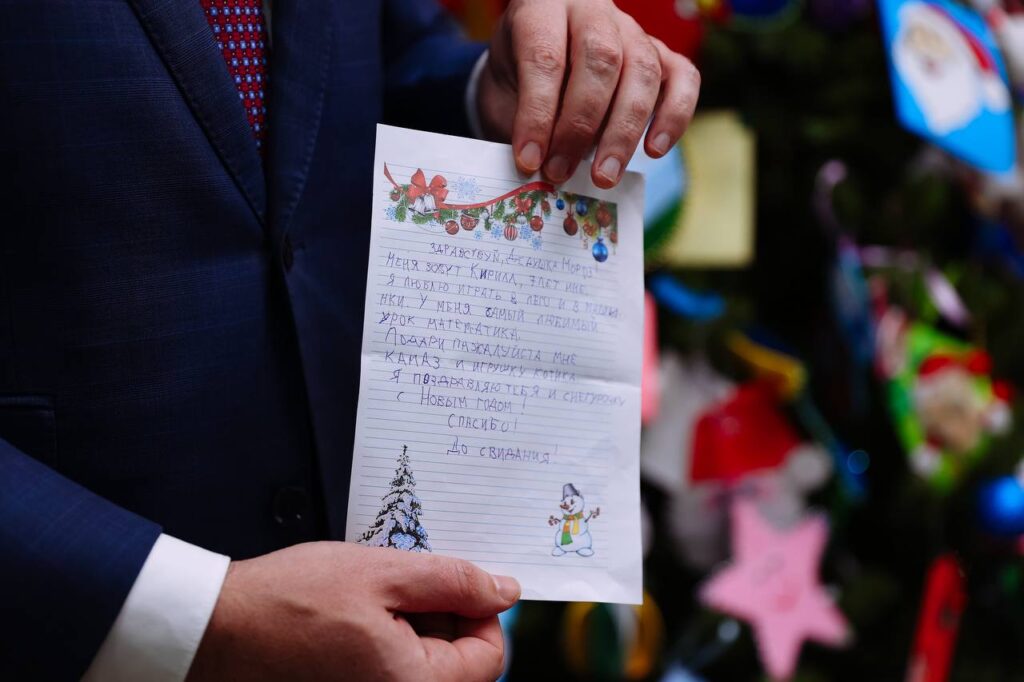 Здравствуй, Дедушка Мороз!
Меня зовут Кирилл, 7 лет мне.
Я люблю играть в лего и в машин
ки. У меня самый любимый
урок математика.
Подари пажалуйста мне
камаз и игрушку котика.
Я поздравляю тебя и снегурочку
с Новым годом!
Спасибо!
До свидания!